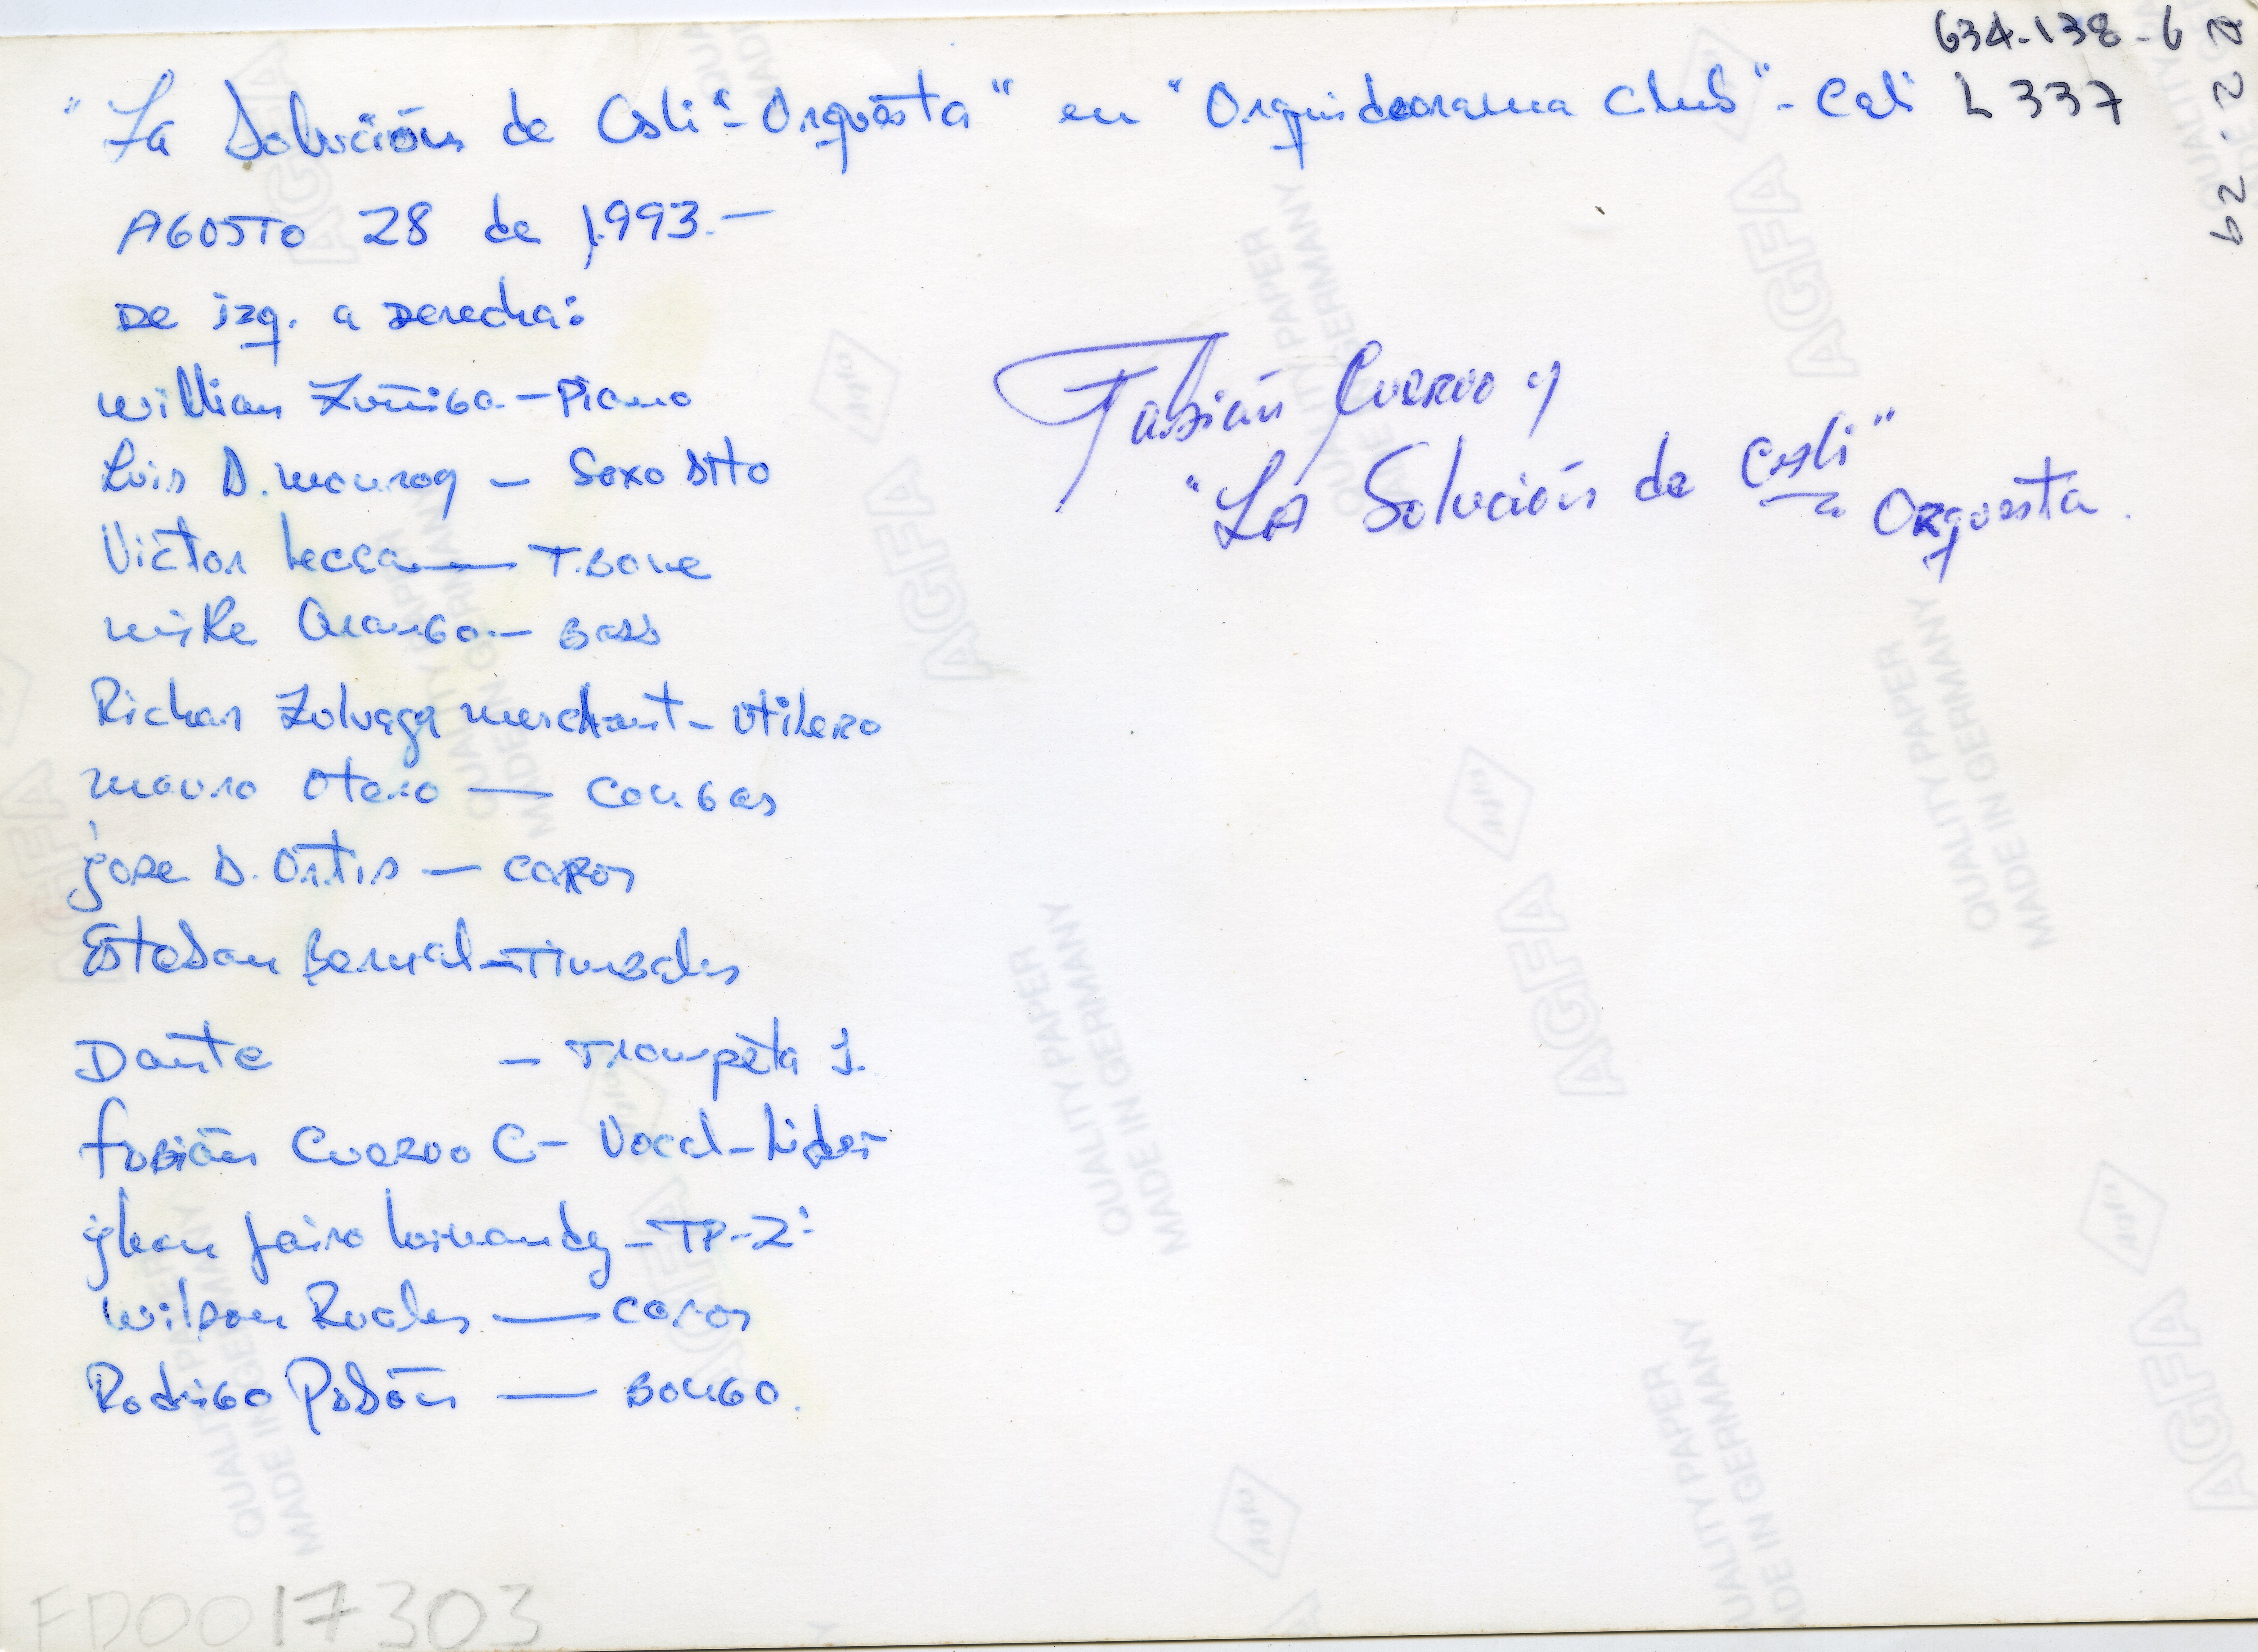 634-138-6
L 337
"La Solución de Cali" - Orquesta" en "Orquideorama Club" - Cali
AGOSTO 28 de 1.993.-
De izq. a Derecha:
Willian Zuñiga - Piano
Luis D. Monroy - Saxo Alto
Victor Lecca - T.Bone
Mike Arango - Bass
Richar Zoluaga Merchant - Utilero
Mauro Otero - Congas
Jose D. Ortis - Coros
Esteban Bernal - Timbales
Dante - Trompeta 1.
Fabián Cuervo C - Vocal - Lider
Jhon Jairo - TP-2:
Wilson Ruales - Coros
Rodrigo Pabón - Bongo.
Fabián Cuervo y
"LA Solución de Cali"
Orquesta.
FD0017303
AGFA
QUALITY PAPER
MADE IN GERMANY